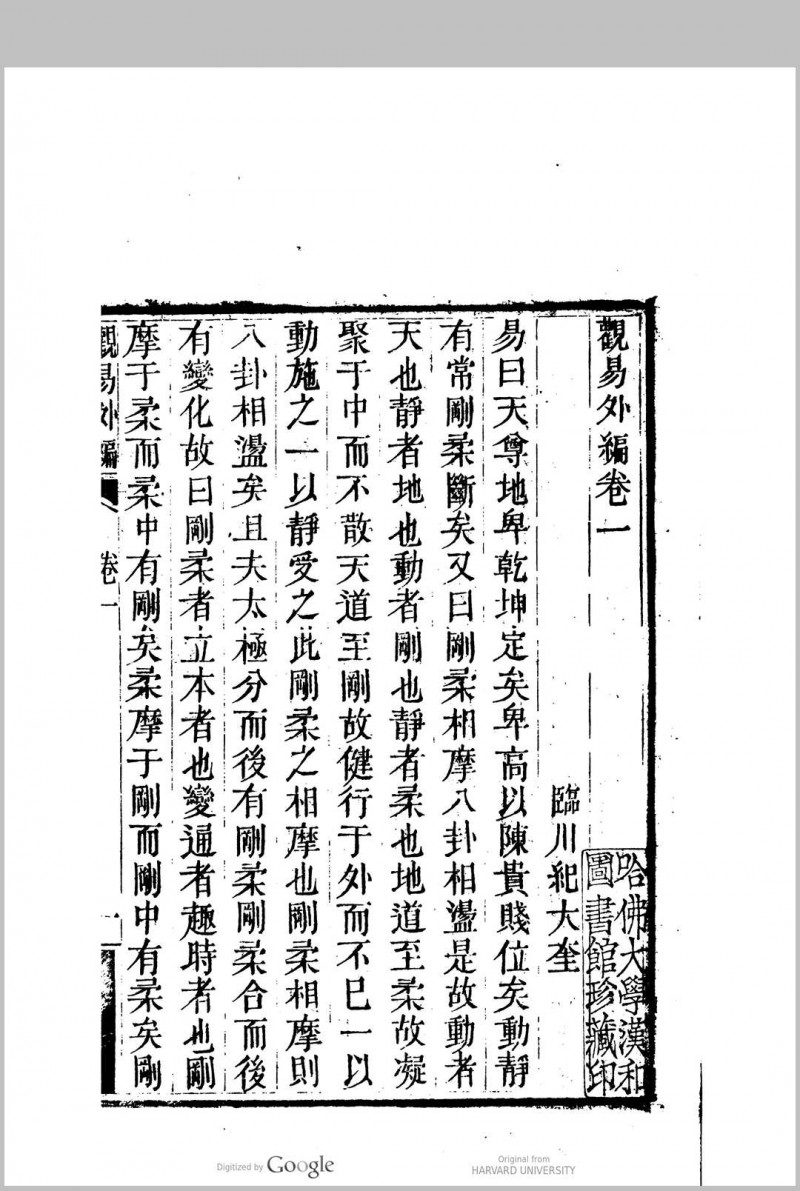 觀易外編卷一
臨川紀大奎
易曰天尊地卑乾坤定矣卑高以陳貴賤位矣動靜
有常剛柔斷矣又曰剛柔相摩八卦相盪是故動者
天也靜者地也動者剛也靜者柔也地道至柔故凝
聚于中而不散天道至剛故健行于外而不已一以
動施之一以靜受之此剛柔之相摩也剛柔相摩則
八卦相盪矣且夫太極分而後有剛柔剛柔合而後
有變化故曰剛柔者立本者也變通者趣時者也剛
摩于柔而柔中有剛矣柔摩于剛而剛中有柔矣剛
觀易外編 卷一 一
哈佛大學漢和
圖書館珍藏印
Digitized by Google
Original from
HARVARD UNIVERSITY